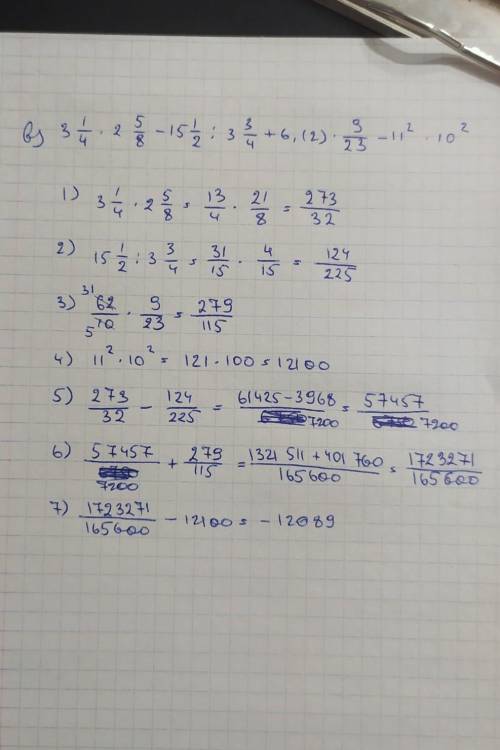 в) 3 1/4 · 2 5/8 - 15 1/2 : 3 3/4 + 6,(2) · 9/23 - 11² · 10²
1) 3 1/4 · 2 5/8 = 13/4 · 21/8 = 273/32
2) 15 1/2 : 3 3/4 = 31/15 · 4/15 = 124/225
3) 31 62/10 5 · 9/23 = 279/115
4) 11² · 10² = 121 · 100 = 12100
5) 273/32 - 124/225 = 61425 - 3968/7200 = 57457/7200
6) 57457/7200 + 279/115 = 1321 511 + 401 760/165600 = 1723271/165600
7) 1723271/165600 - 12100 = -12089